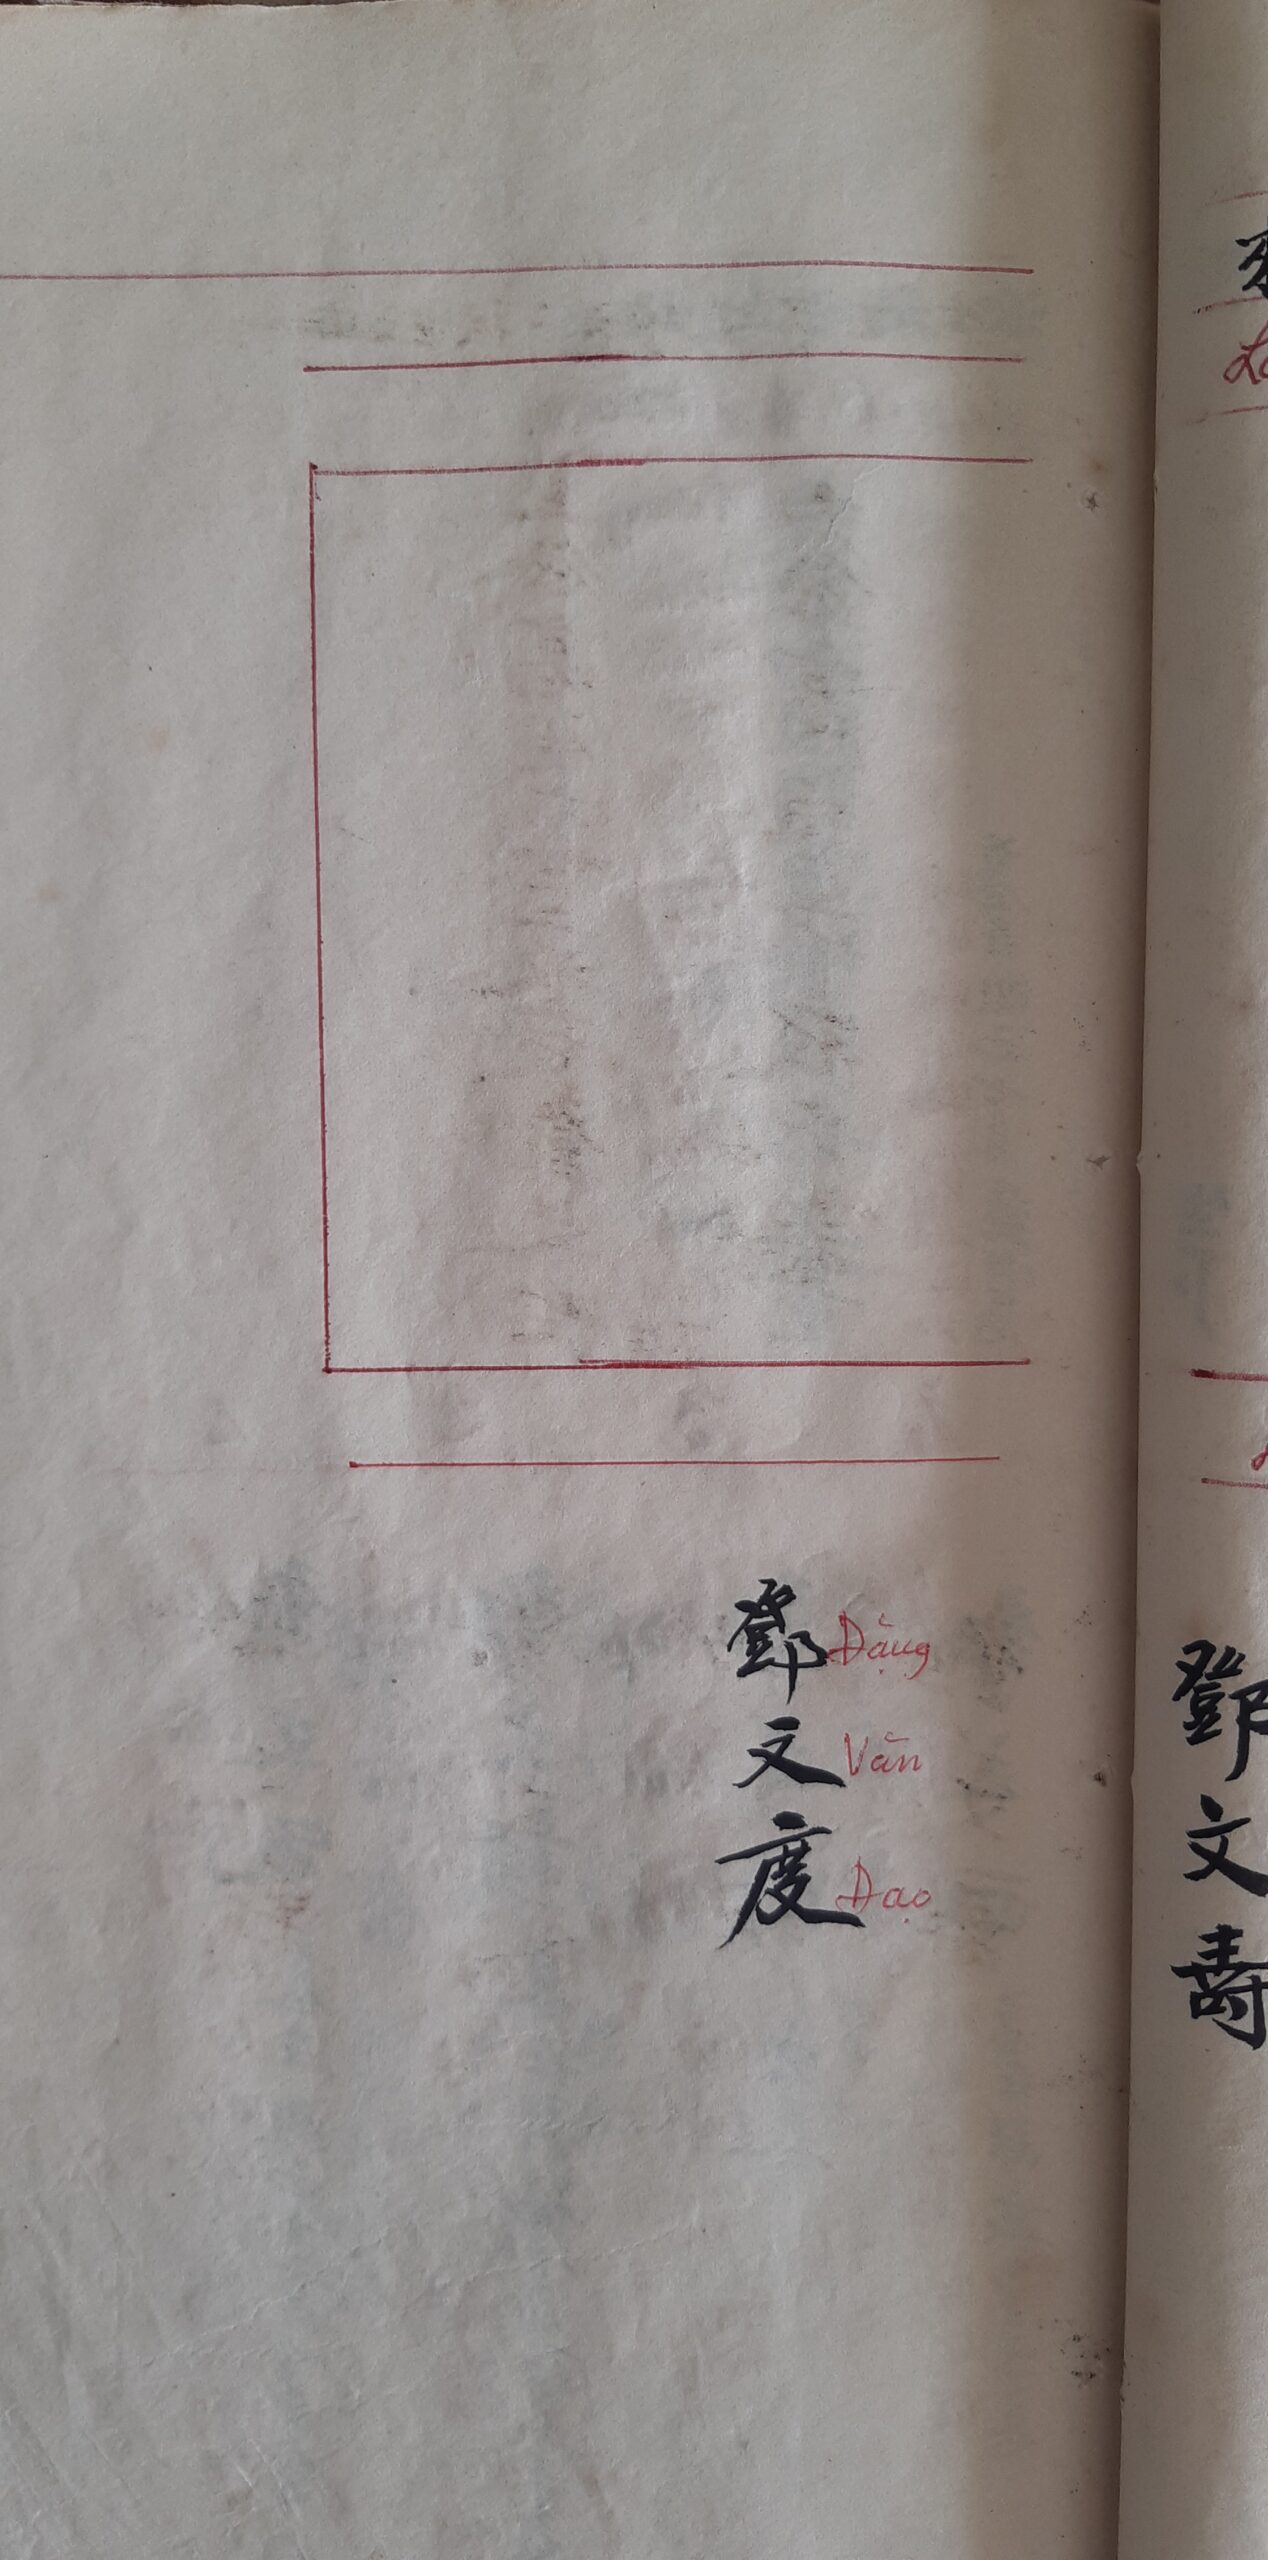 鄧文壽
鄧 Đặng
文 Văn
度 Đạo